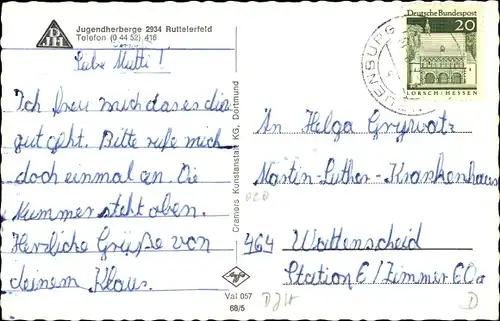 Jugendherberge 2934 Ruttelerfeld
Telefon (0 44 52) 416
Liebe Mutti!
Ich freu mich das es dir
gut geht. Bitte rufe mich
doch einmal an. Die
Nummer steht oben.
Herzliche Grüße von
deinem Klaus.
Cramers Kunstanstalt KG, Dortmund
Val 057
68/5
Deutsche Bundespost
20
LORSCH/HESSEN
An Helga
Martin-Luther-Krankenhaus
464 Wattenscheid
Station E/Zimmer E0a
DJH
D